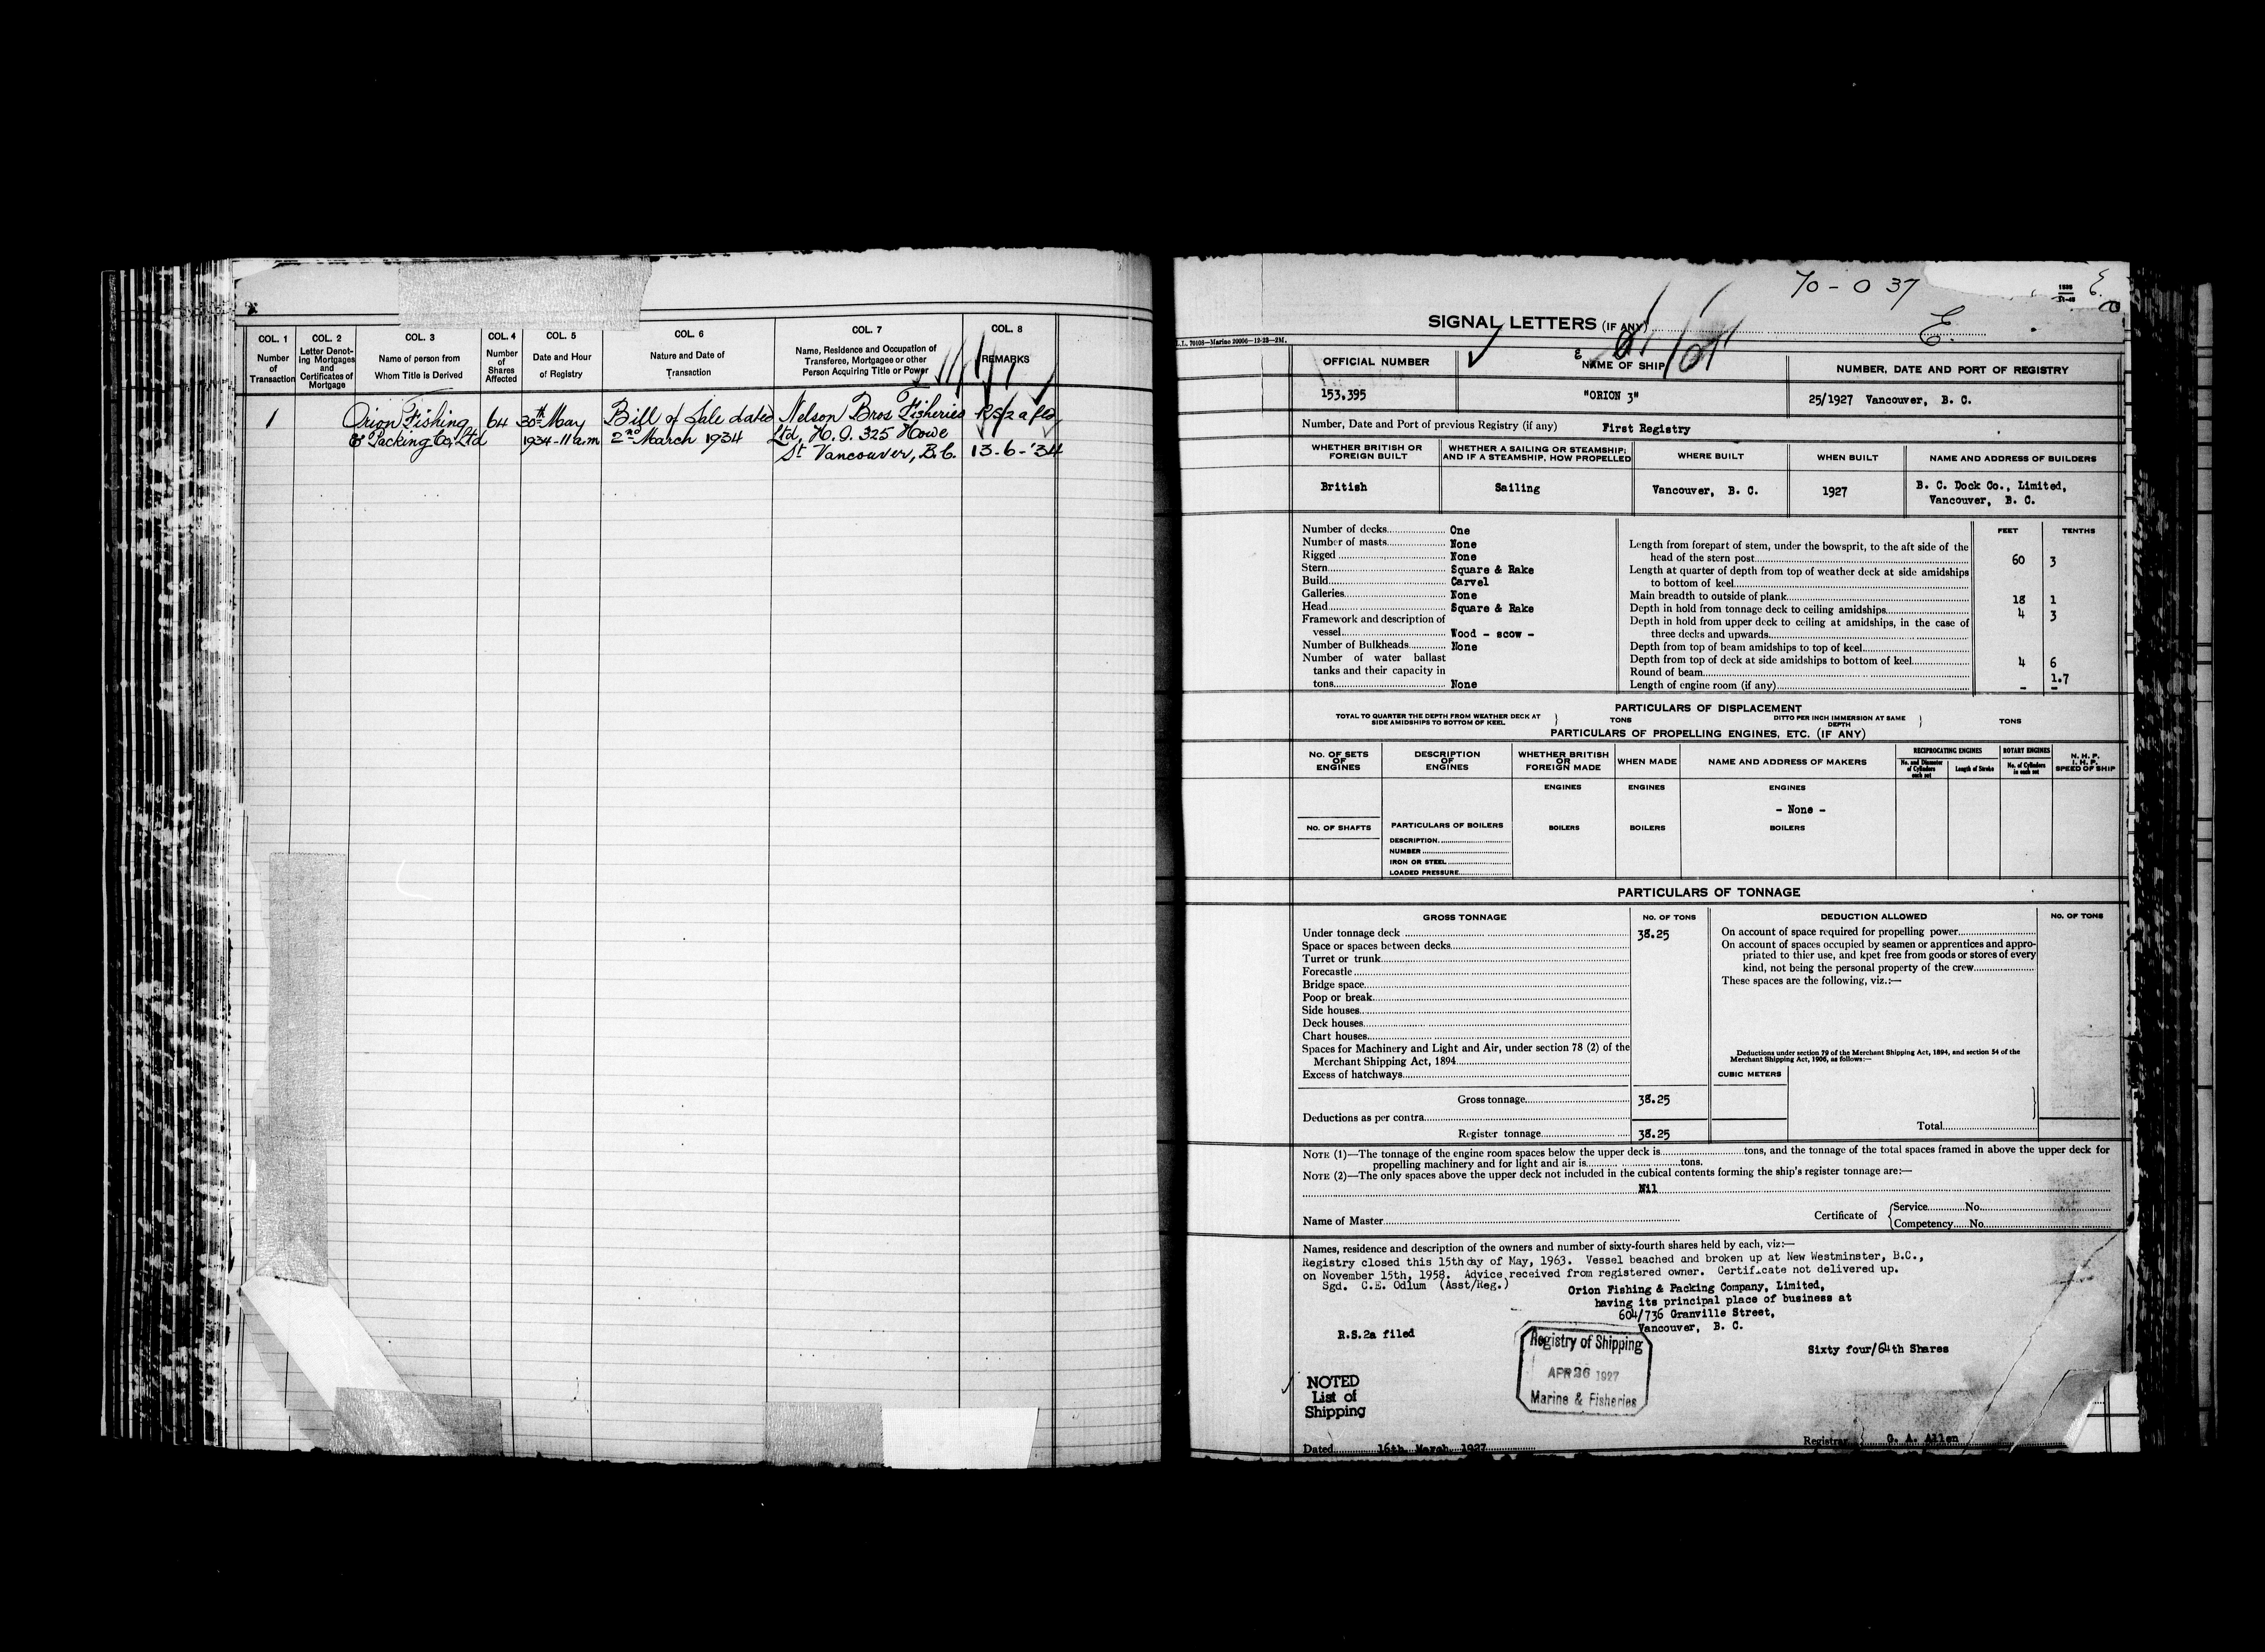 COL. 1 COL. 2 COL. 3 COL. 4 COL. 5 COL. 6 COL. 7 COL. 8
Number of Transaction
Letter Denoting Mortgages and Certificates of Mortgage
Name of person from Whom Title is Derived
Number of Shares Affected
Date and Hour of Registry
Nature and Date of Transaction
Name, Residence and Occupation of Transferee, Mortgagee or other Person Acquiring Title or Power
REMARKS
1 Orion Fishing 64 30th May Bill of Sale dated Nelson Bros Fisheries RS/2a fld
& Packing Co, Ltd 1934-11 a.m 2nd March 1934 Ltd, H.O. 325 Howe
St Vancouver, B.C. 13-6-'34
70-037
SIGNAL LETTERS (IF ANY)
E.
L.L. 70108—Marine 20006—12-23—2M.
OFFICIAL NUMBER NAME OF SHIP NUMBER, DATE AND PORT OF REGISTRY
153,395 "ORION 3" 25/1927 Vancouver, B. C.
Number, Date and Port of previous Registry (if any) First Registry
WHETHER BRITISH OR FOREIGN BUILT
WHETHER A SAILING OR STEAMSHIP; AND IF A STEAMSHIP, HOW PROPELLED
WHERE BUILT WHEN BUILT NAME AND ADDRESS OF BUILDERS
British Sailing Vancouver, B. C. 1927 B. C. Dock Co., Limited,
Vancouver, B. C.
Number of decks One
Number of masts None
Rigged None
Stern Square & Rake
Build Carvel
Galleries None
Head Square & Rake
Framework and description of
vessel Wood - scow -
Number of Bulkheads None
Number of water ballast
tanks and their capacity in
tons None
FEET TENTHS
Length from forepart of stem, under the bowsprit, to the aft side of the
head of the stern post 60 3
Length at quarter of depth from top of weather deck at side amidships
to bottom of keel
Main breadth to outside of plank 18 1
Depth in hold from tonnage deck to ceiling amidships 4 3
Depth in hold from upper deck to ceiling at amidships, in the case of
three decks and upwards
Depth from top of beam amidships to top of keel
Depth from top of deck at side amidships to bottom of keel 4 6
Round of beam 1.7
Length of engine room (if any) - -
PARTICULARS OF DISPLACEMENT
TOTAL TO QUARTER THE DEPTH FROM WEATHER DECK AT SIDE AMIDSHIPS TO BOTTOM OF KEEL } TONS DITTO PER INCH IMMERSION AT SAME DEPTH } TONS
PARTICULARS OF PROPELLING ENGINES, ETC. (IF ANY)
No. OF SETS OF ENGINES
DESCRIPTION OF ENGINES
WHETHER BRITISH OR FOREIGN MADE
WHEN MADE
NAME AND ADDRESS OF MAKERS
RECIPROCATING ENGINES
No. and Diameter of Cylinders each set
Length of Stroke
ROTARY ENGINES
No. of Cylinders in each set
N. H. P.
I. H. P.
SPEED OF SHIP
ENGINES ENGINES ENGINES
- None -
NO. OF SHAFTS PARTICULARS OF BOILERS BOILERS BOILERS BOILERS
DESCRIPTION
NUMBER
IRON OR STEEL
LOADED PRESSURE
PARTICULARS OF TONNAGE
GROSS TONNAGE No. OF TONS
Under tonnage deck 38.25
Space or spaces between decks
Turret or trunk
Forecastle
Bridge space
Poop or break
Side houses
Deck houses
Chart houses
Spaces for Machinery and Light and Air, under section 78 (2) of the
Merchant Shipping Act, 1894
Excess of hatchways
Gross tonnage 38.25
Deductions as per contra
Register tonnage 38.25
DEDUCTION ALLOWED No. OF TONS
On account of space required for propelling power
On account of spaces occupied by seamen or apprentices and appro-
priated to thier use, and kpet free from goods or stores of every
kind, not being the personal property of the crew
These spaces are the following, viz.:—
Deductions under section 79 of the Merchant Shipping Act, 1894, and section 54 of the
Merchant Shipping Act, 1906, as follows:—
CUBIC METERS
Total
NOTE (1)—The tonnage of the engine room spaces below the upper deck is tons, and the tonnage of the total spaces framed in above the upper deck for
propelling machinery and for light and air is tons.
NOTE (2)—The only spaces above the upper deck not included in the cubical contents forming the ship's register tonnage are:—
Nil
Name of Master Certificate of { Service No.
Competency No.
Names, residence and description of the owners and number of sixty-fourth shares held by each, viz:—
Registry closed this 15th day of May, 1963. Vessel beached and broken up at New Westminster, B.C.,
on November 15th, 1958. Advice received from registered owner. Certificate not delivered up.
Sgd. C.E. Odlum (Asst/Reg.)
Orion Fishing & Packing Company, Limited,
having its principal place of business at
604/736 Granville Street,
Vancouver, B. C.
R.S.2a filed
Sixty four/64th Shares
Registry of Shipping
APR 26 1927
Marine & Fisheries
NOTED
List of
Shipping
Dated 16th March 1927
Registrar G. A. Allen